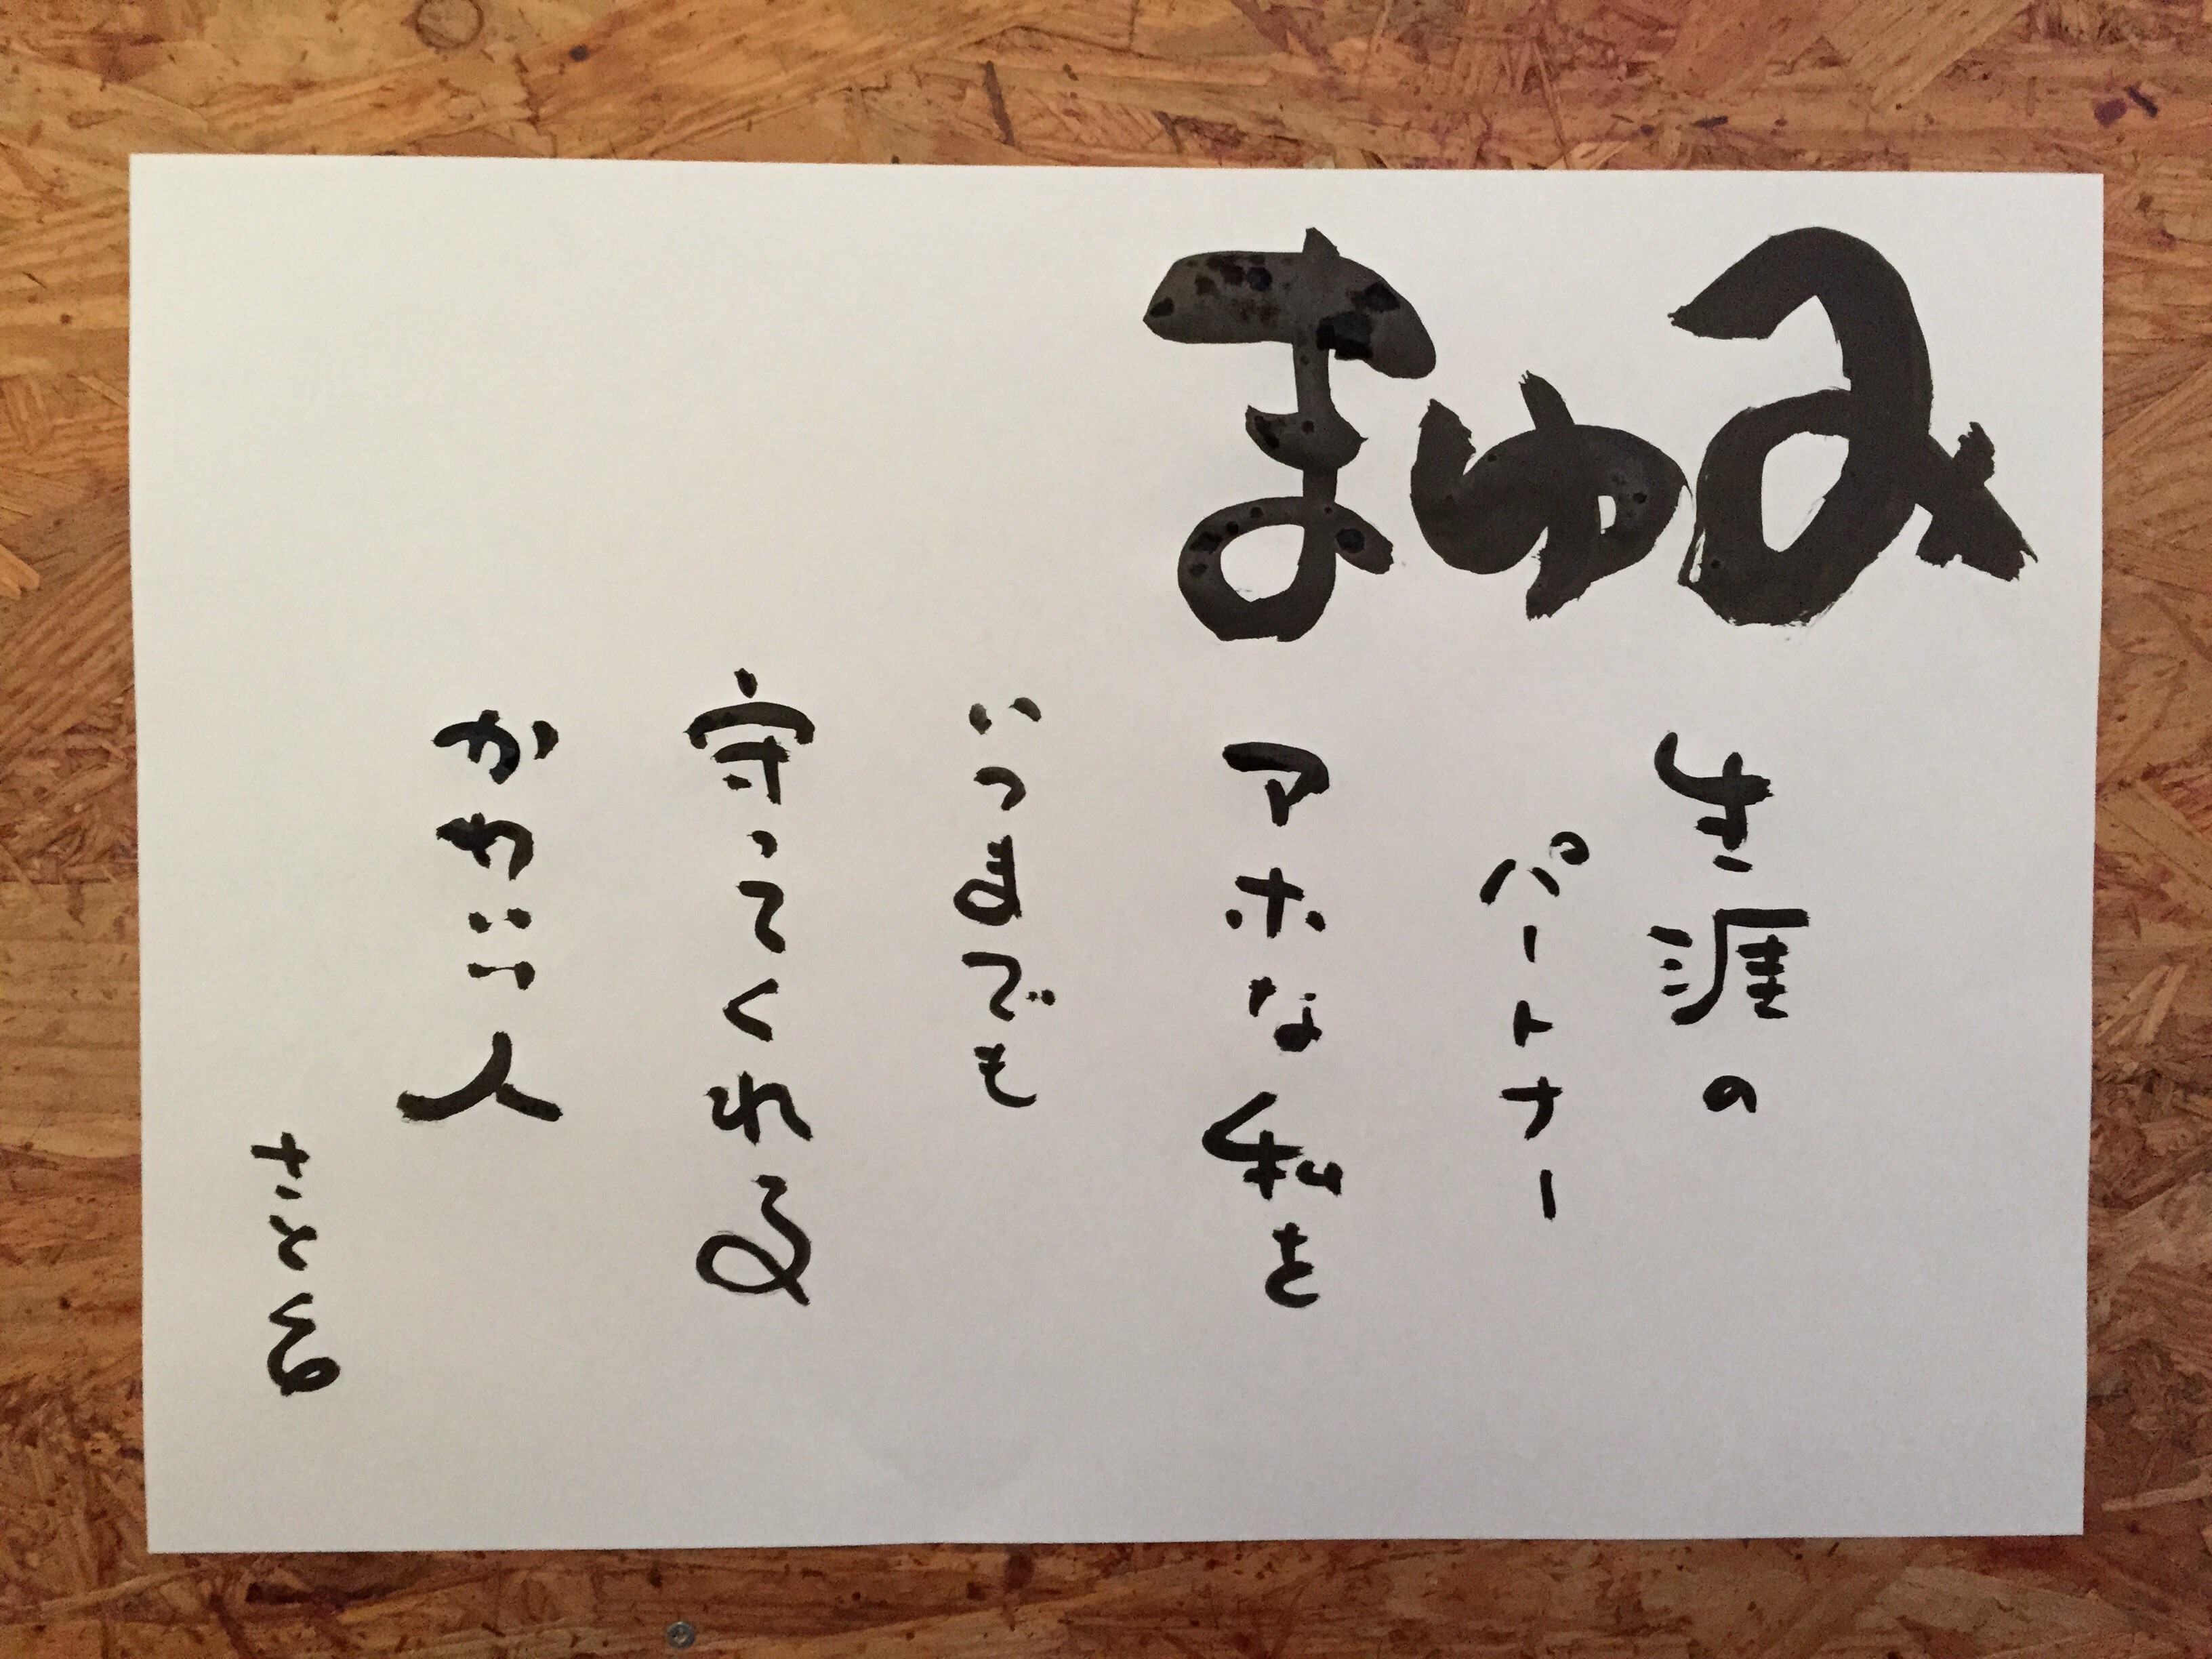 まゆみ
生涯の
パートナー
アホな私を
いつまでも
守ってくれる
かわいい人
さとる